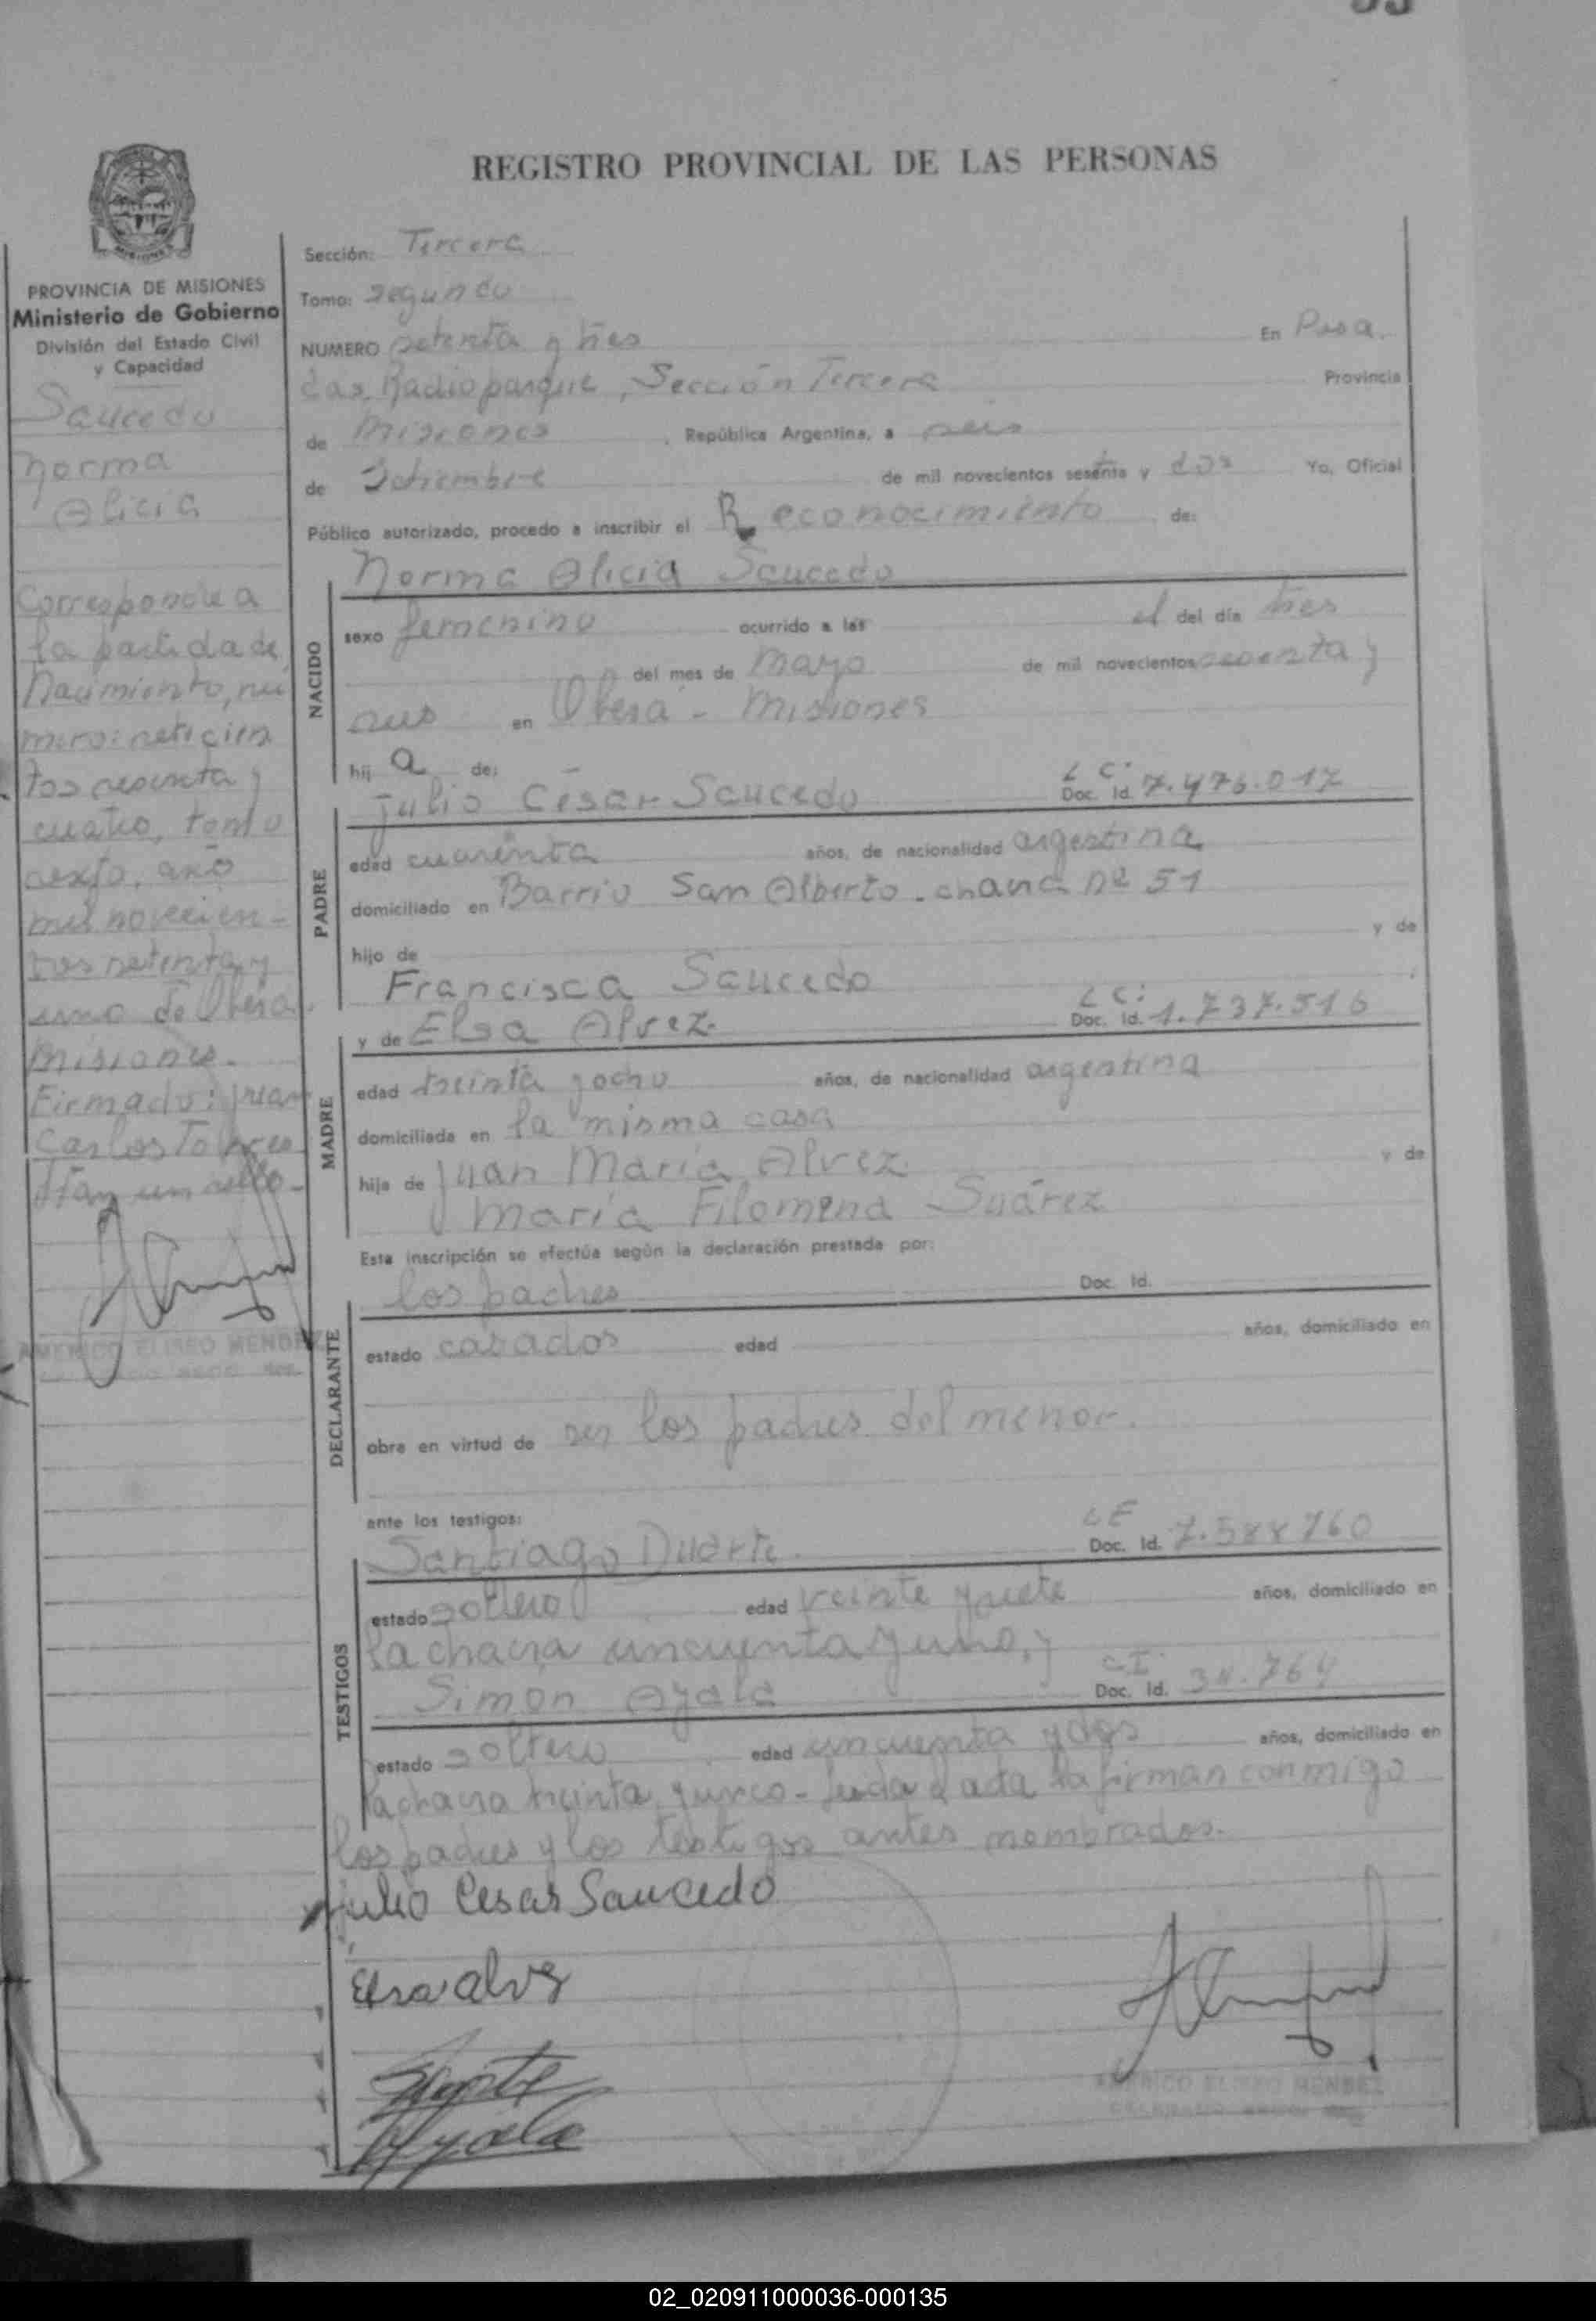 REGISTRO PROVINCIAL DE LAS PERSONAS
PROVINCIA DE MISIONES
Ministerio de Gobierno
División del Estado Civil
y Capacidad
Saucedo
Norma
Alicia
Corresponde a
la partida de
Nacimiento, nú
mero: seticien
tos sesenta y
cuatro, tomo
sexto, año
mil novecien-
tos setenta y
uno de Oberá
Misiones.
Firmado: Juan
Carlos
Hay un sello-
AMERICO ELISEO MENDEZ
Sección: Tercera
Tomo: Segundo
NUMERO setenta y tres En Posa
das, Radio parque, Sección Tercera Provincia
de Misiones, República Argentina, a seis
de Setiembre de mil novecientos setenta y dos Yo, Oficial
Público autorizado, procedo a inscribir el Reconocimiento de:
Norma Alicia Saucedo
NACIDO
sexo femenino ocurrido a las el del día tres
del mes de Mayo de mil novecientos sesenta y
seis en Oberá - Misiones
hij a de:
Julio César Saucedo L C: Doc. Id. 7.476.017
PADRE
edad cuarenta años, de nacionalidad argentina
domiciliado en Barrio San Alberto - chacra Nº 51
hijo de y de
Francisca Saucedo
y de Elsa Alvez L C: Doc. Id. 1.737.516
MADRE
edad treinta y ocho años, de nacionalidad argentina
domiciliada en la misma casa
hija de Juan María Alvez y de
María Filomena Suárez
Esta inscripción se efectúa según la declaración prestada por:
los padres Doc. Id.
DECLARANTE
estado casados edad años, domiciliado en
obra en virtud de ser los padres del menor.
ante los testigos:
Santiago Duarte L E Doc. Id. 7.588760
TESTIGOS
estado soltero edad veinte y siete años, domiciliado en
la chacra cincuenta y uno, y
Simón Ayala C I. Doc. Id. 34.764
estado soltero edad cincuenta y dos años, domiciliado en
la chacra treinta y cinco - Leída el acta la firman conmigo
los padres y los testigos antes nombrados.
Julio Cesar Saucedo
Elsa Alvez
Ayala
AMERICO ELISEO MENDEZ
02_020911000036-000135